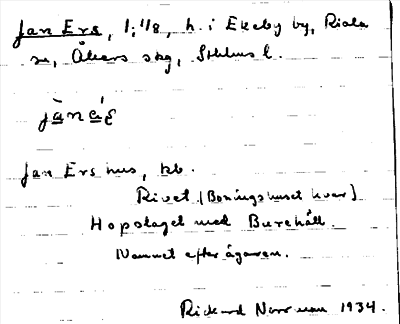 Jan Ers, 1:1/8, h. i Ekeby by, Riala
sn, Åkers skg, Sthlms l.
jànéɛ
Jan Ers hus, bb.
Rivet (Boningshuset kvar)
Hopslaget med Burehåll.
Namnet efter ägaren.
Rickard Norrman 1934.